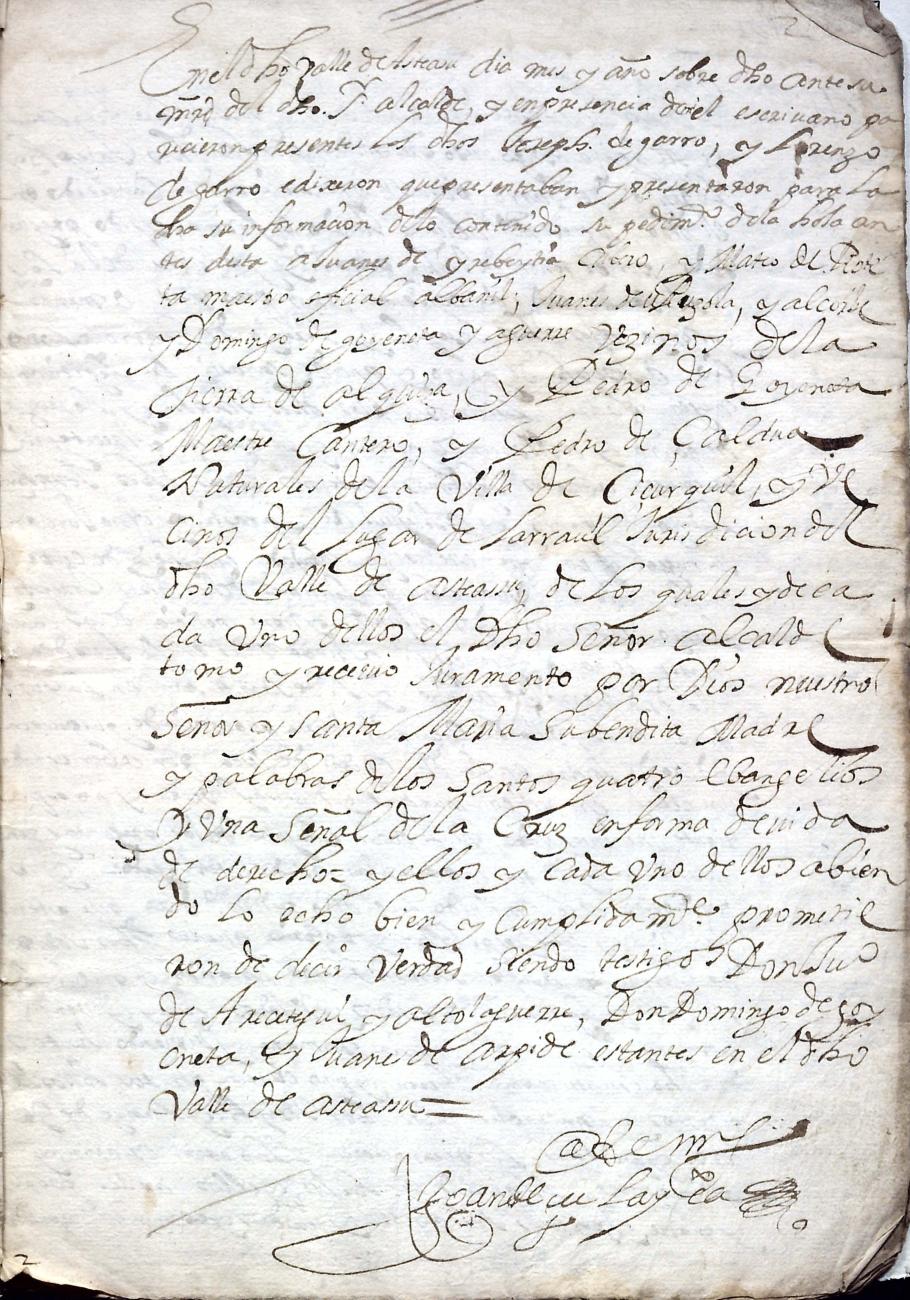 2
En el dho Valle de Asteasu dia mes y año sobre dho ante su
mrd del dho. Sr alcalde, y en presencia de mi el escrivano pa
recieron presentes los dhos Joseph. de garro, y Lorenzo
de garro e dixeron que presentaban y presentaron para la
dha su informacion de lo contenido su pedimto de la hoja an
tes desta a Juanes de yrebeytia, y Mateo de
ta maestro oficial albañil, Juanes de, y alcorta
y Domingo de goyeneta y aguirre Vezinos de la
tierra de alquiza, y Pedro de Goyeneta
Maestre Cantero, y Pedro de Çaldua
Naturales de la Villa de Cicurquil, y Ve
cinos del Lugar de Larraul Jurisdicion del
dho Valle de asteasu, de los quales y de ca
da Uno dellos el dho Señor alcalde
tomo y recevio Juramento por Dios nuestro
Señor y Santa Maria Su bendita Madre
y palabras de los Santos quatro Ebangelios
y Una Señal de la Cruz en forma devida
de derecho= y ellos y Cada Uno dellos abien
do lo echo bien y Cumplidamte prometie
ron de decir Verdad siendo testigos Don Juo
de Arecegui y altolaguirre, Don Domingo de goy
eneta, y Juanes de arpide estantes en el dho
Valle de asteasu=
Ante mi
Joan de
2